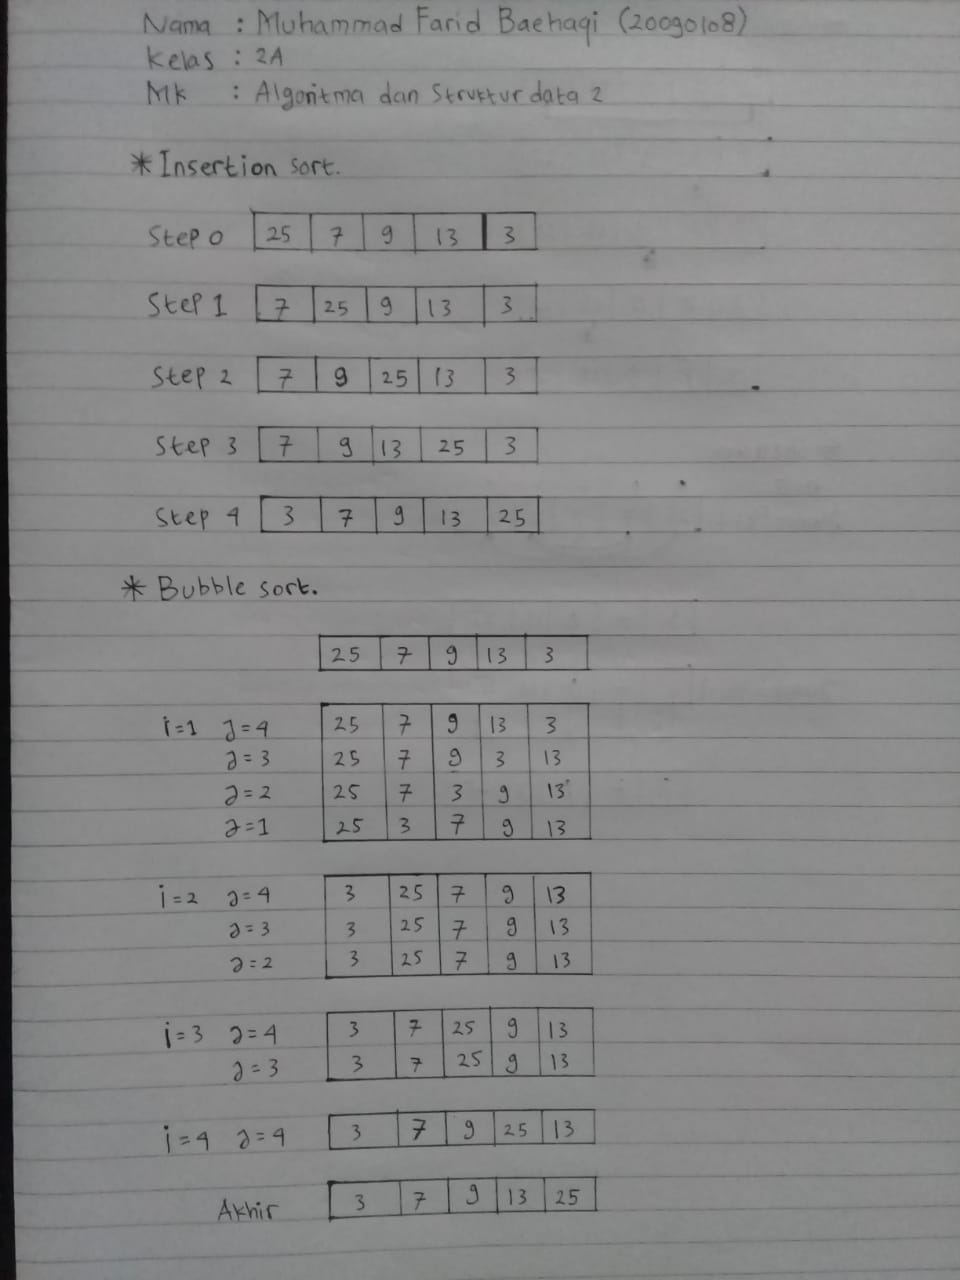 Nama : Muhammad Farid Baehaqi (20090108)
Kelas : 2A
Mk : Algoritma dan Struktur data 2
* Insertion sort.
Step 0 25 7 9 13 3
Step 1 7 25 9 13 3
Step 2 7 9 25 13 3
Step 3 7 9 13 25 3
Step 4 3 7 9 13 25
* Bubble sort.
25 7 9 13 3
i=1 J=4 25 7 9 13 3
J=3 25 7 9 3 13
J=2 25 7 3 9 13
J=1 25 3 7 9 13
i=2 J=4 3 25 7 9 13
J=3 3 25 7 9 13
J=2 3 25 7 9 13
i=3 J=4 3 7 25 9 13
J=3 3 7 25 9 13
i=4 J=4 3 7 9 25 13
Akhir 3 7 9 13 25